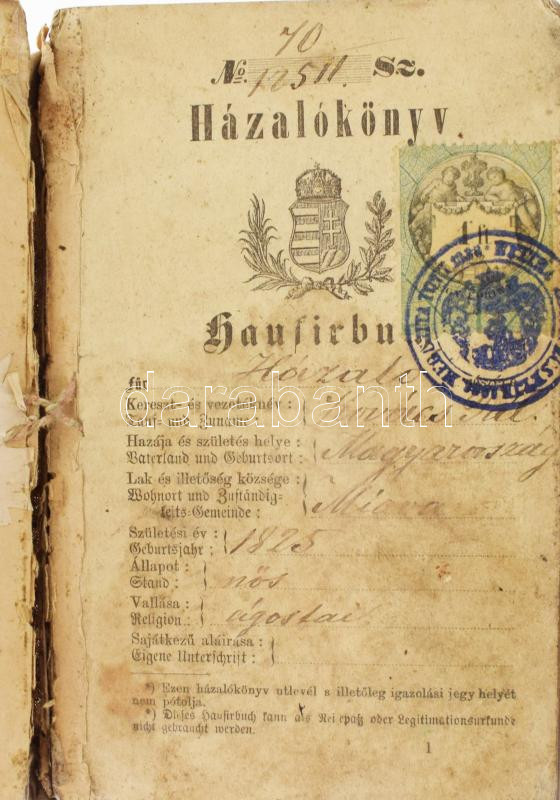 70
No. 12511. Sz.
Házalókönyv
1 ft
Hausirbu
Für
Kereszt- és vezetéknév :
Tauf- und Zuname :
Kovács
Hazája és születés helye :
Vaterland und Geburtsort :
Magyarország
Lak és illetőség községe :
Wohnort und Zuständig-
keits-Gemeinde :
Miava
Születési év :
Geburtsjahr :
1825
Állapot :
Stand :
nős
Vallása :
Religion :
ágostai
Sajátkezű aláirása :
Eigene Unterschrift :
*) Ezen házalókönyv utlevél s illetőleg igazolási jegy helyét
nem pótolja.
*) Dieses Hausirbuch kann als Reisepaß oder Legitimationsurkunde
nicht gebraucht werden.
1
darabanth